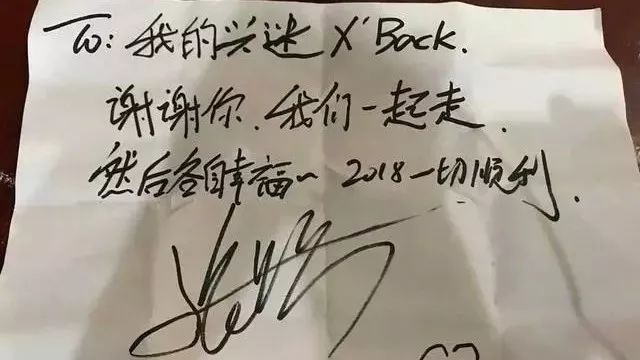 To: 我的兴迷 X'Back.
谢谢你、我们一起走.
然后各自幸福~ 2018一切顺利.